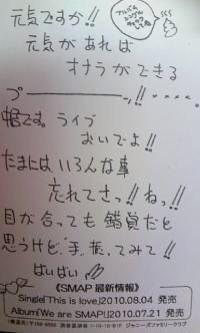 元気ですか!!
元気があれば
オナラができる
プーーーーーーっ!!
です。ライブ
おいでよ!!
たまにはいろんな事
忘れてさっ!!ねっ!!
目が合っても錯覚だと
思うけど手振ってみて!!
ばいばい
《SMAP 最新情報》
Single「This is love」2010.08.04 発売
Album「We are SMAP!」2010.07.21 発売
ジャニーズファミリークラブ